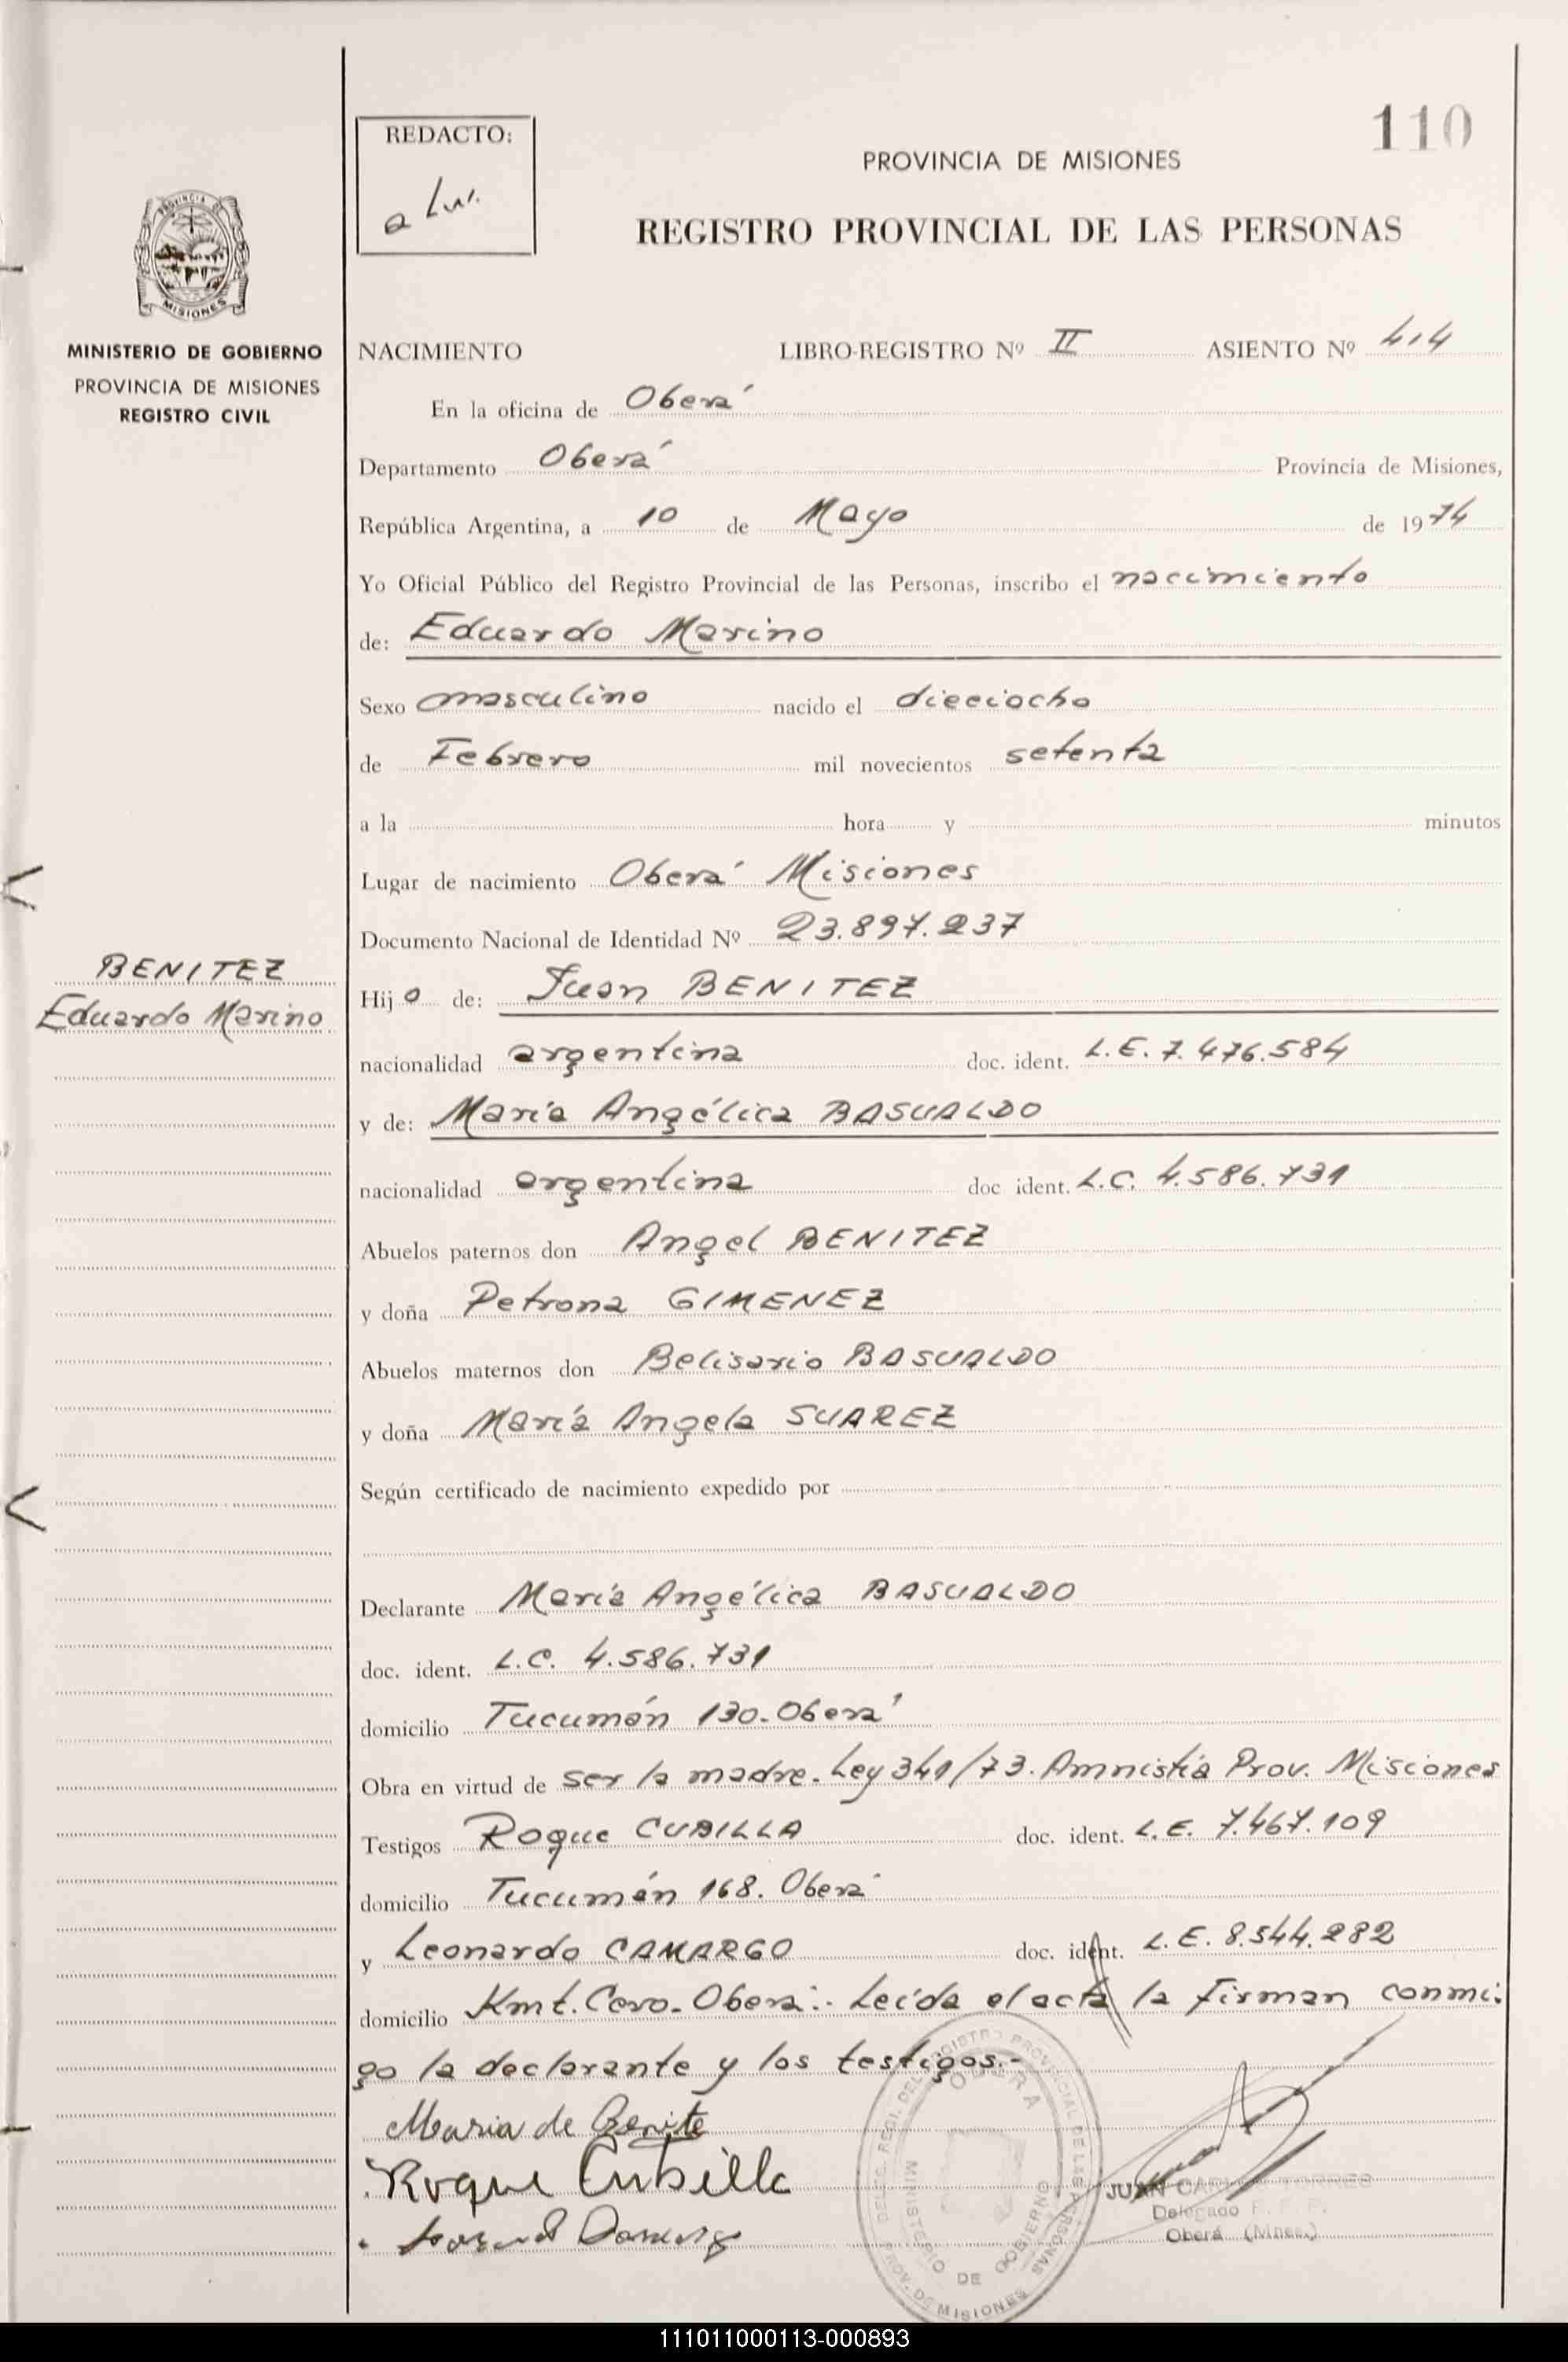 110
REDACTO:
PROVINCIA DE MISIONES
REGISTRO PROVINCIAL DE LAS PERSONAS
PROVINCIA DE
MISIONES
MINISTERIO DE GOBIERNO
PROVINCIA DE MISIONES
REGISTRO CIVIL
NACIMIENTO LIBRO-REGISTRO Nº II ASIENTO Nº 414
En la oficina de Oberá
Departamento Oberá Provincia de Misiones,
República Argentina, a 10 de Mayo de 1974
Yo Oficial Público del Registro Provincial de las Personas, inscribo el nacimiento
de: Eduardo Marino
Sexo masculino nacido el dieciocho
de Febrero mil novecientos setenta
a la hora y minutos
Lugar de nacimiento Oberá Misiones
Documento Nacional de Identidad Nº 23.897.237
BENITEZ
Eduardo Marino
Hijo de: Juan BENITEZ
nacionalidad argentina doc. ident. L.E. 7.476.584
y de: María Angélica BASUALDO
nacionalidad argentina doc ident. L.C. 4.586.731
Abuelos paternos don Angel BENITEZ
y doña Petrona GIMENEZ
Abuelos maternos don Belisario BASUALDO
y doña María Angela SUAREZ
Según certificado de nacimiento expedido por
Declarante María Angélica BASUALDO
doc. ident. L.C. 4.586.731
domicilio Tucumán 130-Oberá
Obra en virtud de ser la madre. Ley 341/73. Amnistía Prov. Misiones
Testigos Roque CUBILLA doc. ident. L.E. 7.467.109
domicilio Tucumán 168. Oberá
y Leonardo CAMARGO doc. ident. L.E. 8.544.282
domicilio Kmt. Cero-Oberá.- Leída el acta la firman conmi-
go la declarante y los testigos.-
Maria de Benite
Roque Cubilla
REGISTRO PROVINCIAL DE LAS PERSONAS
OBERA
MINISTERIO DE GOBIERNO
PROV. DE MISIONES
JUAN CARLOS TORRES
Delegado
Oberá (Mnes.)
111011000113-000893